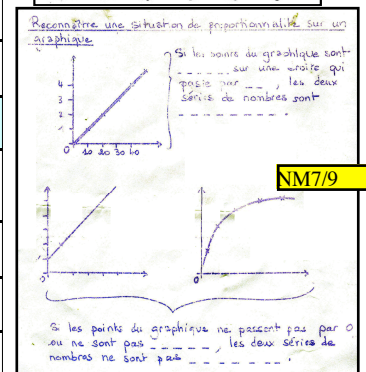 Reconnaître une situation de proportionnalité sur un
graphique
Si les points du graphique sont
_ _ _ _ _ sur une droite qui
passe par _ _ , les deux
séries de nombres sont
_ _ _ _ _ _ _ _ .
4
3
2
1
0
10 20 30 40
NM7/9
0
Si les points du graphique ne passent pas par 0
ou ne sont pas _ _ _ _ _ , les deux séries de
nombres ne sont pas _ _ _ _ _ _ .